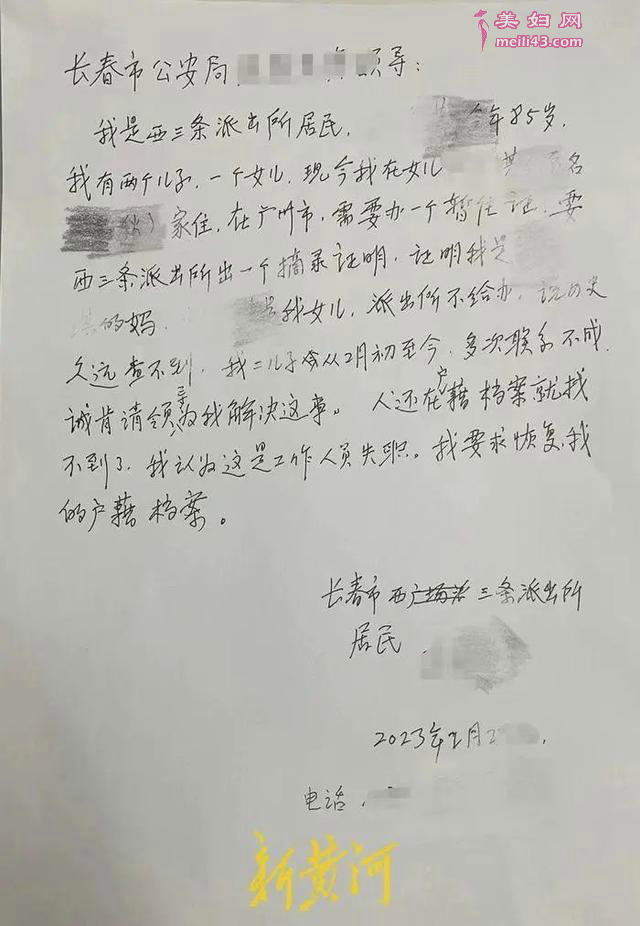 美妇网
meili43.com
长春市公安局 领导：
我是西三条派出所居民， 今年85岁，
我有两个儿子，一个女儿，现今我在女儿
家住，在广州市，需要办一个暂住证，要
西三条派出所出一个摘录证明，证明我是
的妈， 是我女儿，派出所不给办，说历史
久远查不到，我二儿子从2月初至今，多次联系不成，
诚肯请领导为我解决这事。人还在户藉档案就找
不到了，我认为这是工作人员失职。我要求恢复我
的户藉档案。
长春市西 三条派出所
居民
2023年2月2
电话
新黄河